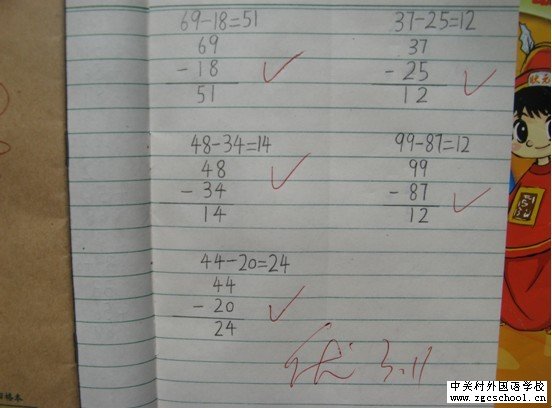 69-18=51
69
-18
51
37-25=12
37
-25
12
48-34=14
48
-34
14
99-87=12
99
-87
12
44-20=24
44
-20
24
优 3.11
状元
格本
中关村外国语学校
www.zgcschool.com.cn